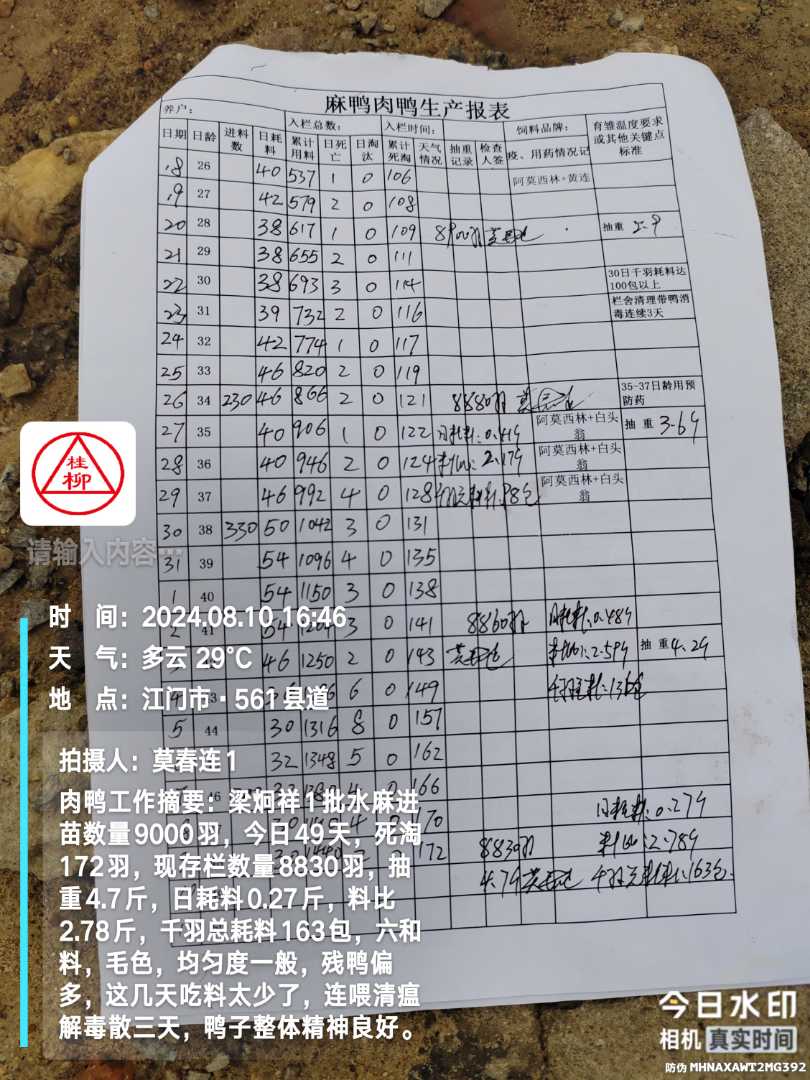 麻鸭肉鸭生产报表
养户: 入栏总数: 入栏时间: 饲料品牌: 育雏温度要求或其他关键点标准
日期 日龄 进料数 日耗料 累计用料 日死亡 日淘汰 累计死淘 天气情况 抽重记录 检查人签 疫、用药情况记
18 26 40 537 1 0 106 阿莫西林+黄连
19 27 42 579 2 0 108
20 28 38 617 1 0 109 8900羽 抽重 2.9
21 29 38 655 2 0 111
22 30 38 693 3 0 114 30日千羽耗料达100包以上
23 31 39 732 2 0 116 栏舍清理带鸭消毒连续3天
24 32 42 774 1 0 117
25 33 46 820 2 0 119
26 34 230 46 866 2 0 121 8880羽 35-37日龄用预防药
27 35 40 906 1 0 122 日耗料:0.41斤 阿莫西林+白头翁 抽重 3.6斤
28 36 40 946 2 0 124 料比:2.17斤 阿莫西林+白头翁
29 37 46 992 4 0 128 98包 阿莫西林+白头翁
30 38 330 50 1042 3 0 131
31 39 54 1096 4 0 135
1 40 54 1150 3 0 138
2 41 54 1204 3 0 141 8860羽 日耗料:0.48斤
46 1250 2 0 143 料比:2.59斤 抽重 4.2斤
6 0 149 千羽总耗:136包
5 44 30 1316 8 0 157
32 1348 5 0 162
46 4 0 166
170 日耗料:0.27斤
172 8830羽 料比:2.78斤
4.7斤 163包
桂柳
请输入内容…
时 间: 2024.08.10 16:46
天 气: 多云 29℃
地 点: 江门市·561县道
拍摄人: 莫春连1
肉鸭工作摘要: 梁炯祥1批水麻进
苗数量9000羽,今日49天,死淘
172羽,现存栏数量8830羽,抽
重4.7斤,日耗料0.27斤,料比
2.78斤,千羽总耗料163包,六和
料,毛色,均匀度一般,残鸭偏
多,这几天吃料太少了,连喂清瘟
解毒散三天,鸭子整体精神良好。
今日水印
相机 真实时间
防伪 MHNAXAWT2MG392